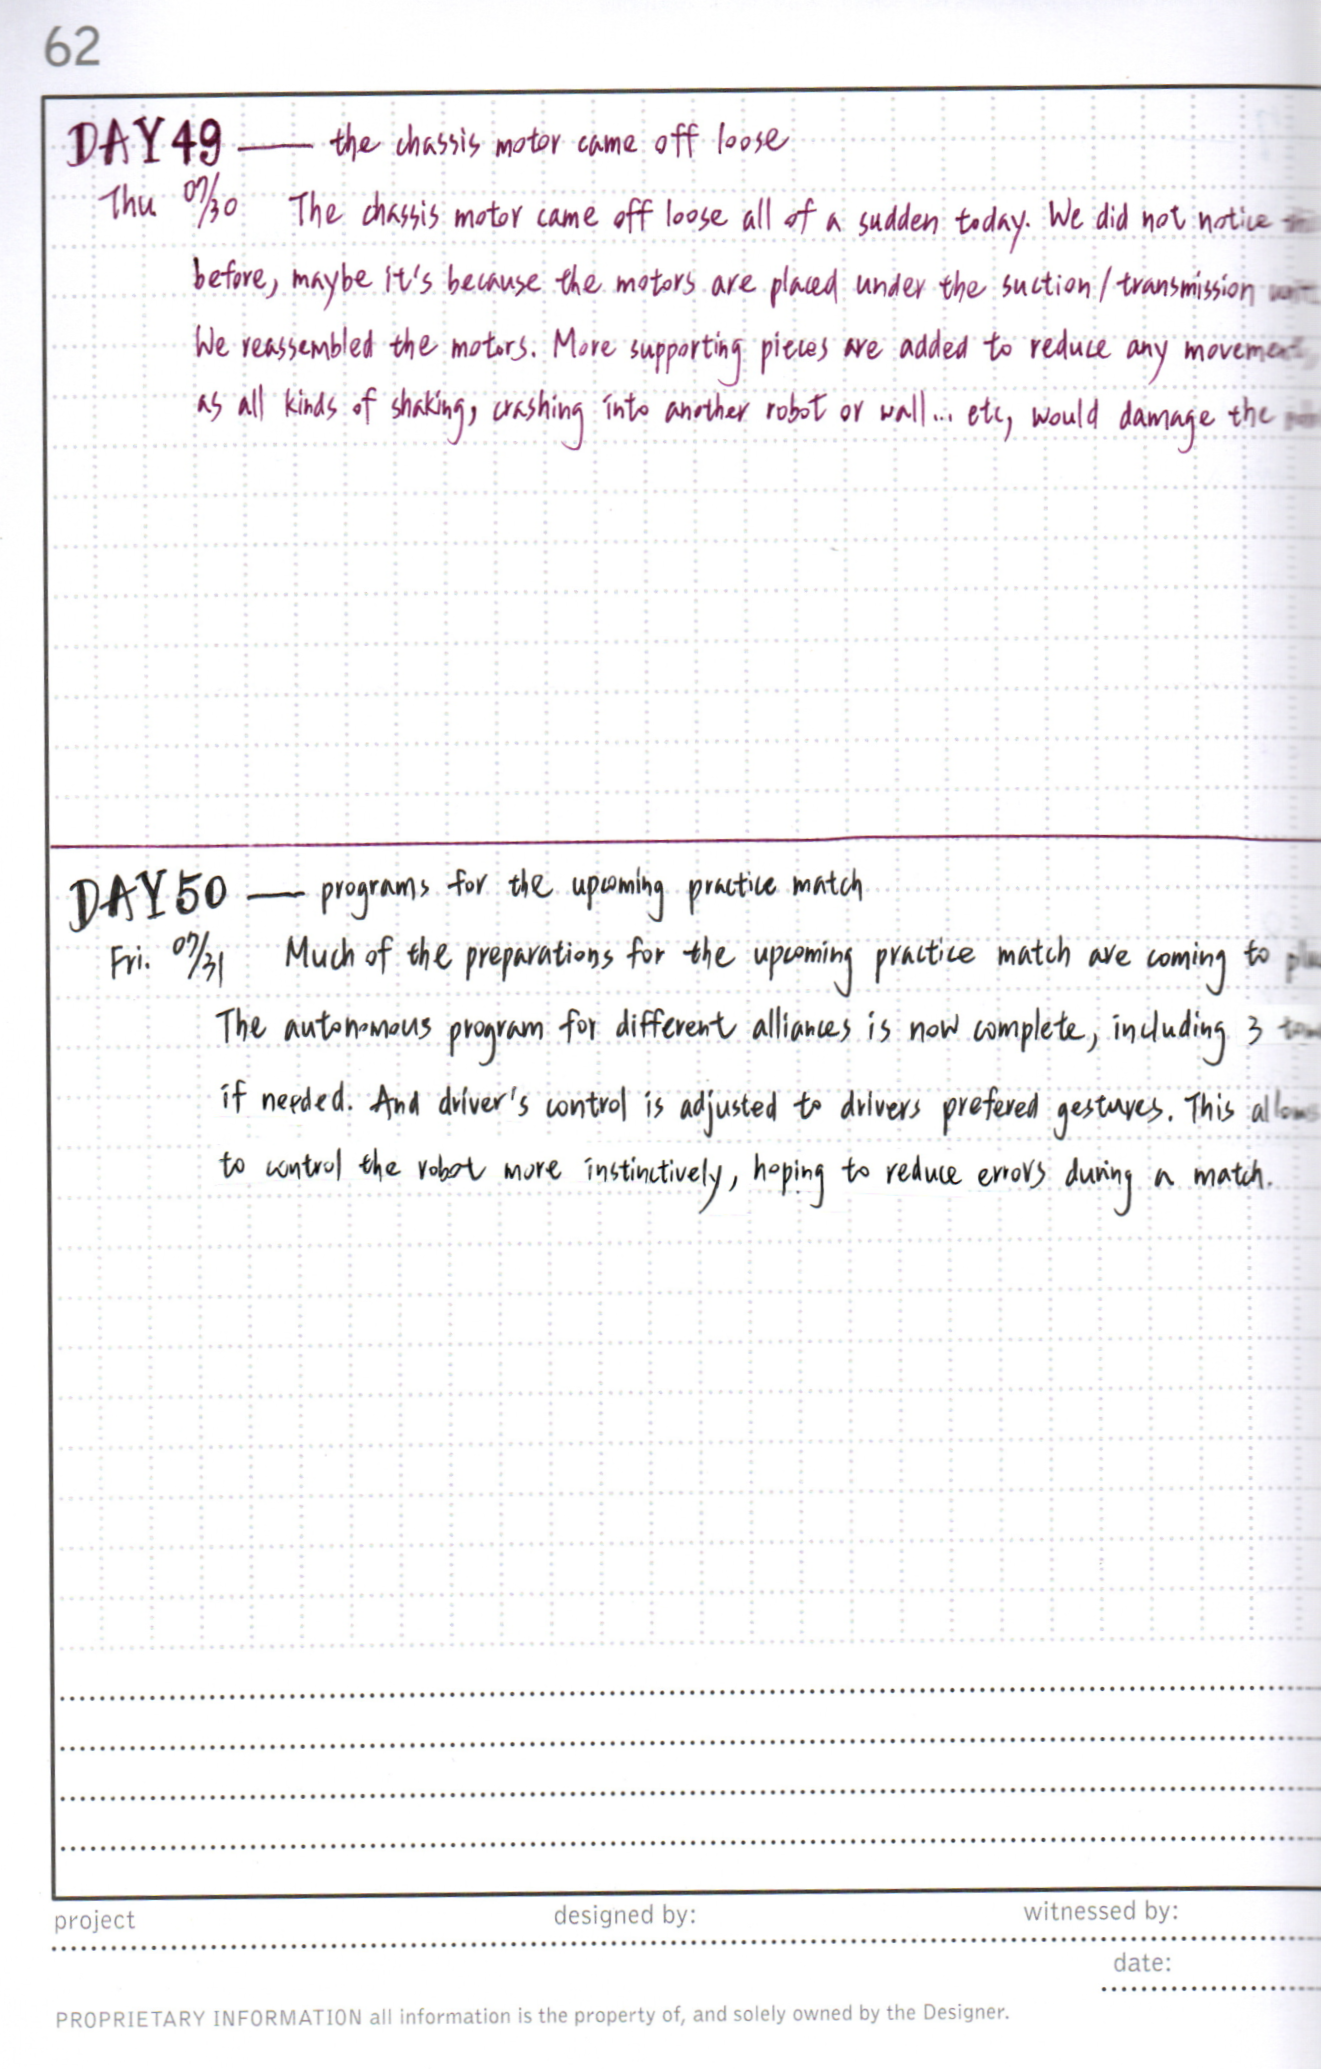 62
DAY 49 — the chassis motor came off loose
Thu 07/30 The chassis motor came off loose all of a sudden today. We did not notice
before, maybe it's because the motors are placed under the suction/transmission
We reassembled the motors. More supporting pieces are added to reduce any movement,
as all kinds of shaking, crashing into another robot or wall... etc, would damage the
DAY 50 — programs for the upcoming practice match
Fri. 07/31 Much of the preparations for the upcoming practice match are coming to
The autonomous program for different alliances is now complete, including 3
if needed. And driver's control is adjusted to drivers prefered gestures. This allows
to control the robot more instinctively, hoping to reduce errors during a match.
project designed by: witnessed by:
date:
PROPRIETARY INFORMATION all information is the property of, and solely owned by the Designer.